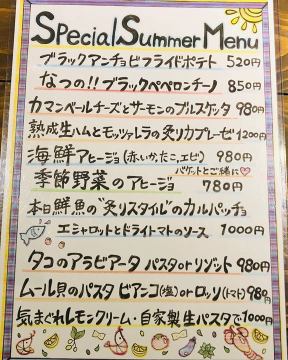 Special Summer Menu
ブラックアンチョビフライドポテト 520円
なつの!! ブラックペペロンチーノ 850円
カマンベールチーズとサーモンのブルスケッタ 980円
熟成生ハムとモッツァレラの炙りカプレーゼ 1200円
海鮮アヒージョ(赤いか、たこ、エビ) 980円
バケットとご一緒に♡
季節野菜のアヒージョ 780円
本日鮮魚の"炙りスタイル"のカルパッチョ
エシャロットとドライトマトのソース 1000円
タコのアラビアータ パスタorリゾット 980円
ムール貝のパスタ ビアンコ(塩)orロッソ(トマト) 980円
気まぐれレモンクリーム・自家製生パスタで 1000円